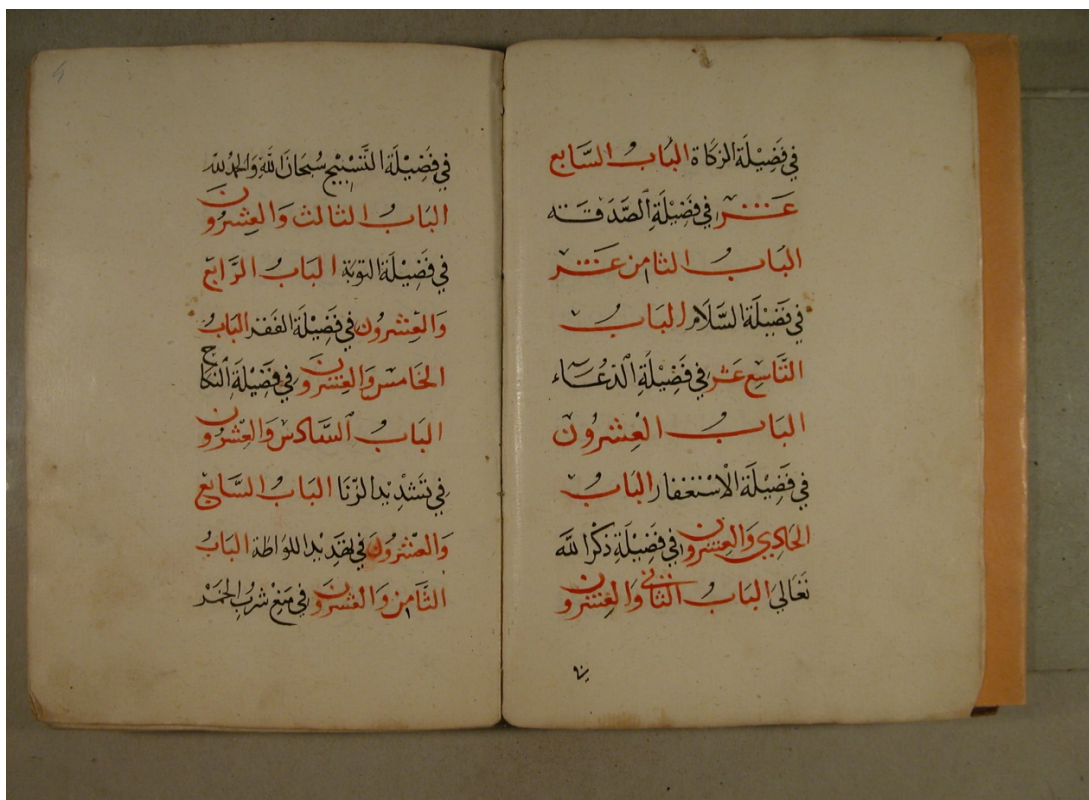 في فَضِيْلَةِ الزكَاة البَابُ السَّابع
عَشَر في فَضِيْلَةِ الصَّدَقَته
البَابُ الثامن عَشَر
في فَضِيْلَةِ السَّلَام البَابُ
التَّاسِع عَشَر في فَضِيْلَةِ الدعَاء
البَابُ العِشرُون
في فَضِيْلَةِ الاسْتغفار البَابُ
الحَادِي وَالعِشرُون في فَضِيْلَةِ ذكْر الله
تعَالي البَابُ الثاني وَالعِشرُون
في فَضِيْلَة التَّسْبِيْح سُبحَانَ اللهِ وَالحمدُ لله
البَابُ الثالث وَالعِشرُون
في فَضِيْلَة التوبَة البَابُ الرَّابع
وَالعِشرُون في فَضِيْلَة الفَقر البَابُ
الخَامس وَالعِشرُون في فَضِيْلَةِ النكَاح
البَابُ السَّادس وَالعِشرُون
في تشْدِيْد الزّنَا البَابُ السَّابع
وَالعشرُون في اللوَاطة البَابُ
الثَّامن وَالعشرُون في مَنع شربِ الخمر